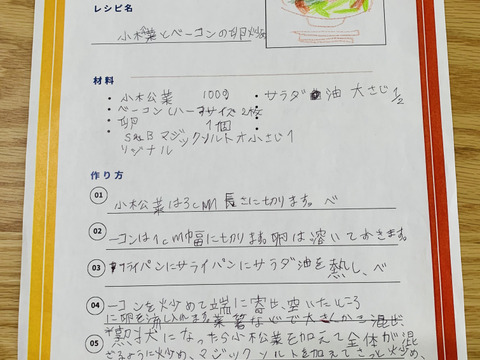 レシピ名
小松菜とベーコンの卵炒め
材料
小松菜 100g
ベーコン(ハーフサイズ 2枚
卵 1個
S&B マジックソルトオ小さじ1
リジナル
サラダ油 大さじ1/2
作り方
01 小松菜は3cm長さに切ります。べ
02 ーコンは1cm幅に切ります。卵は溶いておきます。
03 フライパンにサライパンにサラダ油を熱し、べ
04 ーコンを炒めて端に寄せ、空いたところ
に卵を流し入れます。菜箸などで大きくかき混ぜ、
05 半熟状になったら小松菜を加えて全体が混
ざるように炒め、マジックソルトを加えてさっと炒め